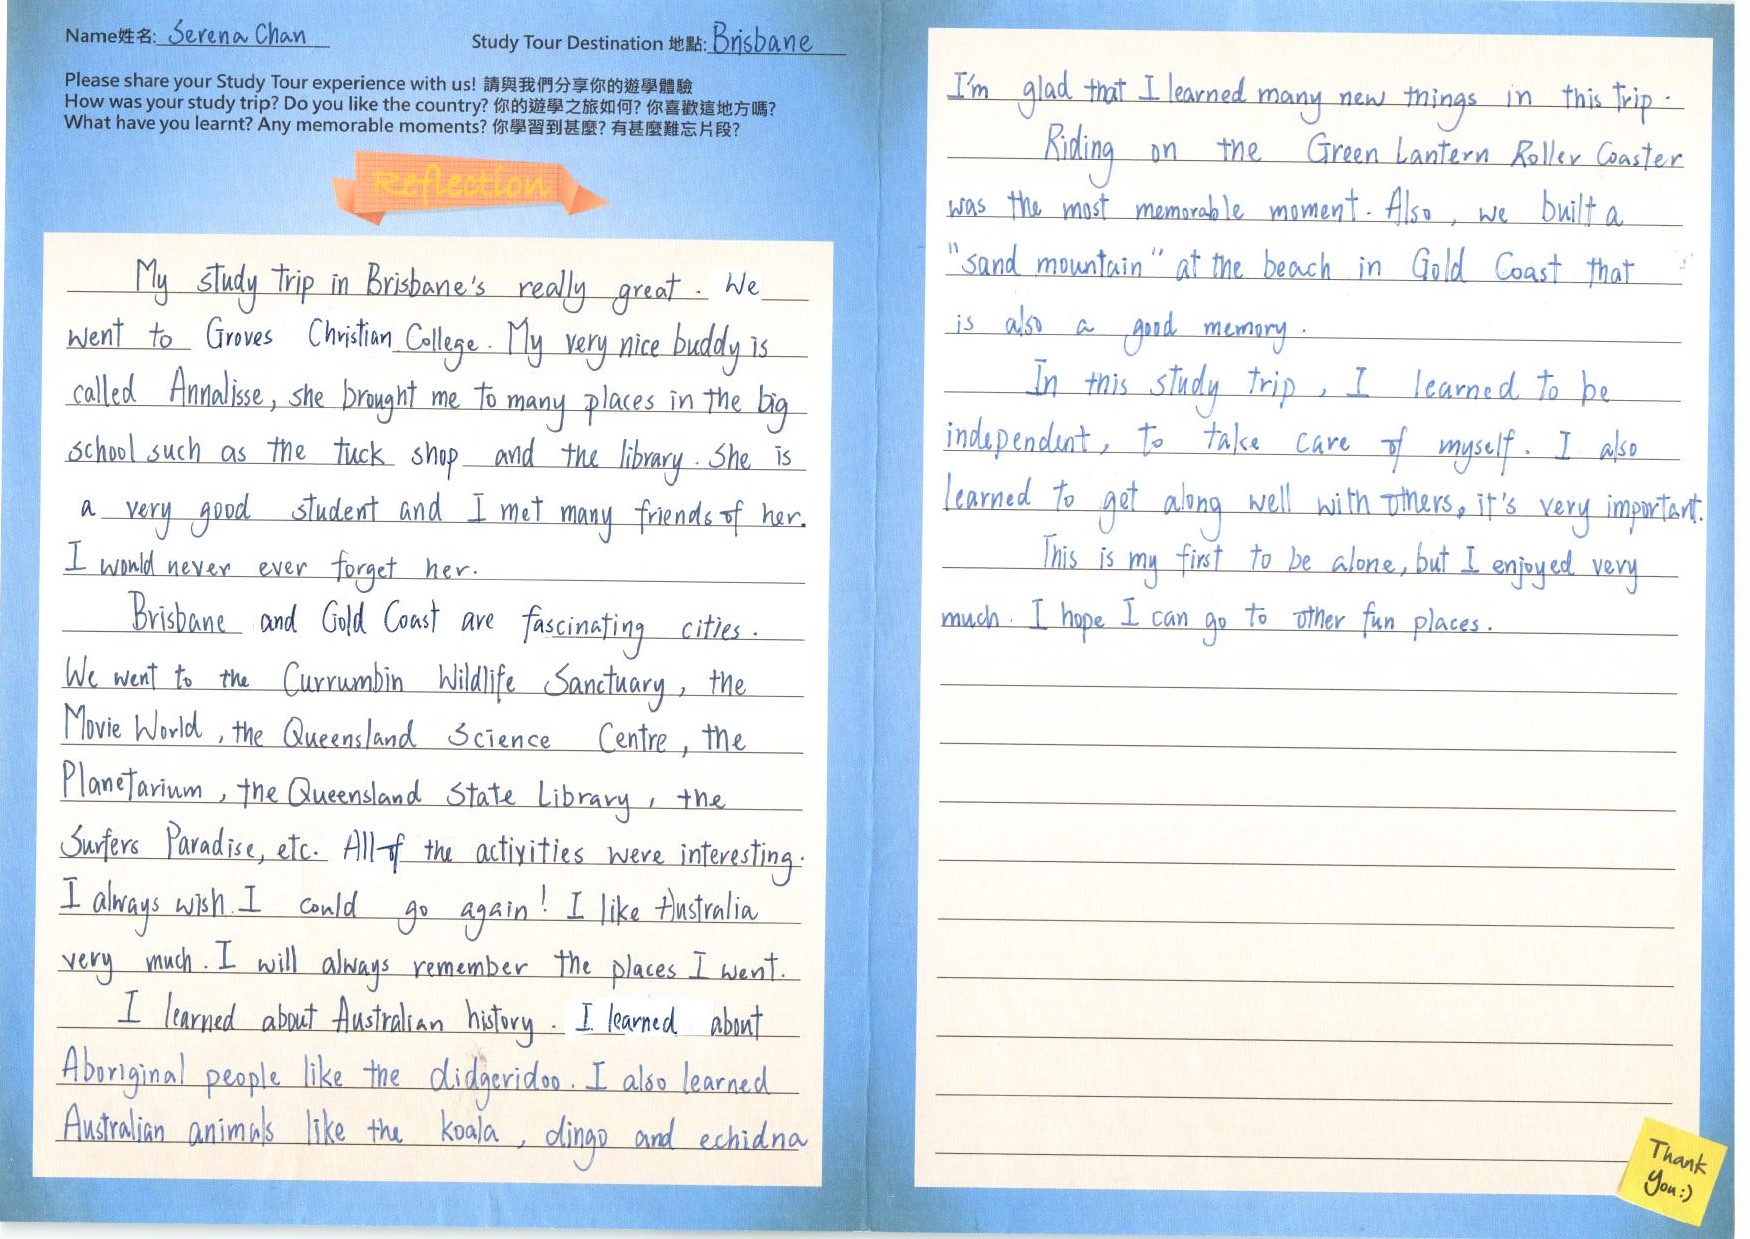 Name姓名: Serena Chan
Study Tour Destination 地點: Brisbane
Please share your Study Tour experience with us! 請與我們分享你的遊學體驗
How was your study trip? Do you like the country? 你的遊學之旅如何? 你喜歡這地方嗎?
What have you learnt? Any memorable moments? 你學習到甚麼? 有甚麼難忘片段?
Reflection
My study trip in Brisbane's really great. We
went to Groves Christian College. My very nice buddy is
called Annalisse, she brought me to many places in the big
school such as the tuck shop and the library. She is
a very good student and I met many friends of her.
I would never ever forget her.
Brisbane and Gold Coast are fascinating cities.
We went to the Currumbin Wildlife Sanctuary, the
Movie World, the Queensland Science Centre, the
Planetarium, the Queensland State Library, the
Surfers Paradise, etc. All of the activities were interesting.
I always wish I could go again! I like Australia
very much. I will always remember the places I went.
I learned about Australian history. I learned about
Aboriginal people like the didgeridoo. I also learned
Australian animals like the koala, dingo and echidna
I'm glad that I learned many new things in this trip.
Riding on the Green Lantern Roller Coaster
was the most memorable moment. Also, we built a
"sand mountain" at the beach in Gold Coast that
is also a good memory.
In this study trip, I learned to be
independent, to take care of myself. I also
learned to get along well with others, it's very important.
This is my first to be alone, but I enjoyed very
much. I hope I can go to other fun places.
Thank
You:)